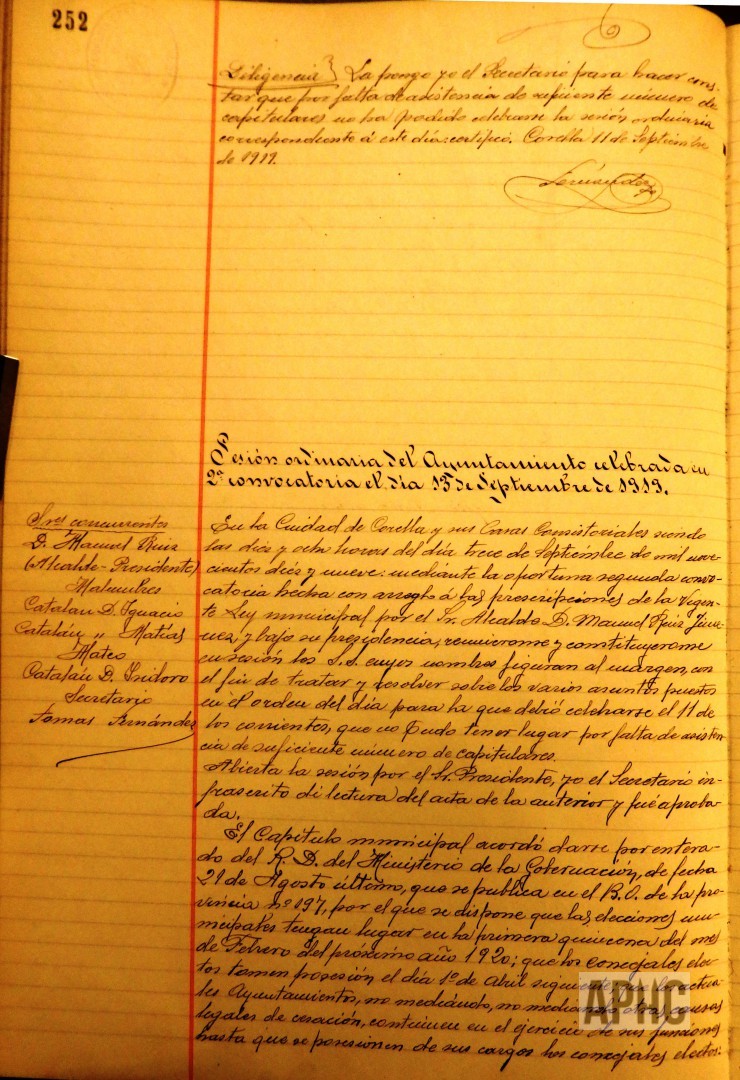 252
Diligencia} La pongo yo el Secretario para hacer cons-
tar que por falta de asistencia de suficiente número de
capitulares no ha podido celebrarse la sesión ordinaria
correspondiente á este día: certifico. Corella 11 de Septiembre
de 1919.
Fernández
Sesión ordinaria del Ayuntamiento celebrada en
2ª convocatoria el día 13 de Septiembre de 1919.
Sres concurrentes
D. Manuel Ruiz
(Alcalde-Presidente)
Malumbres
Catalán D. Ignacio
Catalán " Matías
Mateo
Catalán D. Isidoro
Secretario
Tomas Fernández
En la Ciudad de Corella y sus Casas Consistoriales siendo
las diez y ocho horas del día trece de Septiembre de mil nove-
cientos diez y nueve: mediante la oportuna segunda convo-
catoria hecha con arreglo á las prescripciones de la vigen-
te Ley municipal por el Sr. Alcalde D. Manuel Ruiz Jimé-
nez, y bajo su presidencia, reunieronse y constituyeronse
en sesión los S.S. cuyos nombres figuran al margen, con
el fin de tratar y resolver sobre los varios asuntos puestos
en el orden del día para la que debió celebrarse el 11 de
los corrientes, que no pudo tener lugar por falta de asisten-
cia de suficiente número de capitulares.
Abierta la sesión por el Sr. Presidente, yo el Secretario in-
frascrito di lectura del acta de la anterior y fué aproba-
da.
El Capítulo municipal acordó darse por entera-
do del R. D. del Ministerio de la Gobernación, de fecha
21 de Agosto último, que se publica en el B.O. de la pro-
vincia nº 197, por el que se dispone que las elecciones mu-
nicipales tengan lugar en la primera quincena del mes
de Febrero del próximo año 1920; que los concejales elec-
tos tomen posesión el día 1º de Abril siguiente, los actua-
les Ayuntamientos, no mediando, no mediando otras causas
legales de cesación, continuen en el ejercicio de sus funciones
hasta que se posesionen de sus cargos los concejales electos:
APHC